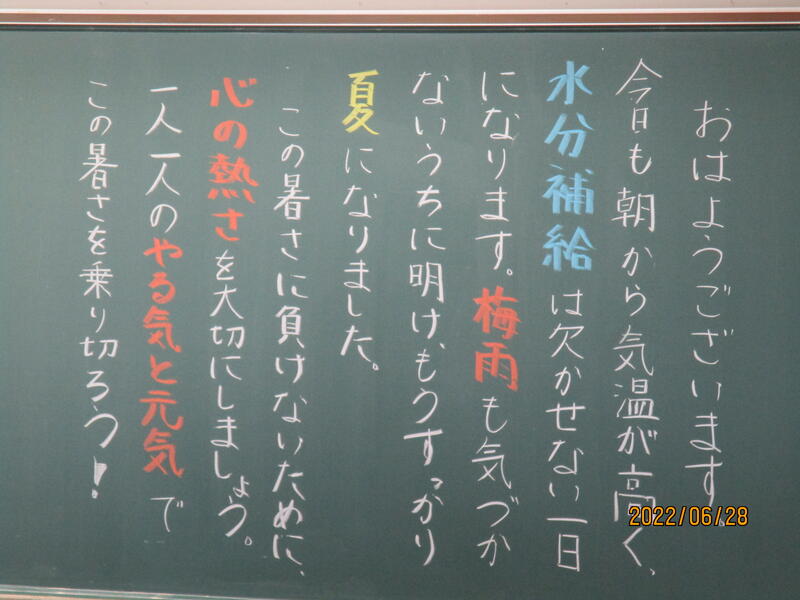 おはようございます。
今日も朝から気温が高く、
水分補給は欠かせない一日
になります。梅雨も気づか
ないうちに明け、もうすっかり
夏になりました。
この暑さに負けないために、
心の熱さを大切にしましょう。
一人一人のやる気と元気で
この暑さを乗り切ろう!
2022/06/28